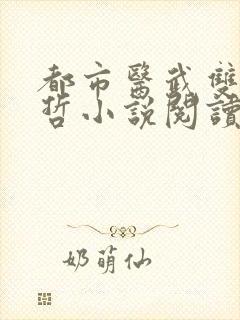 都市醫武雙
哲小說閱讀
奶萌仙